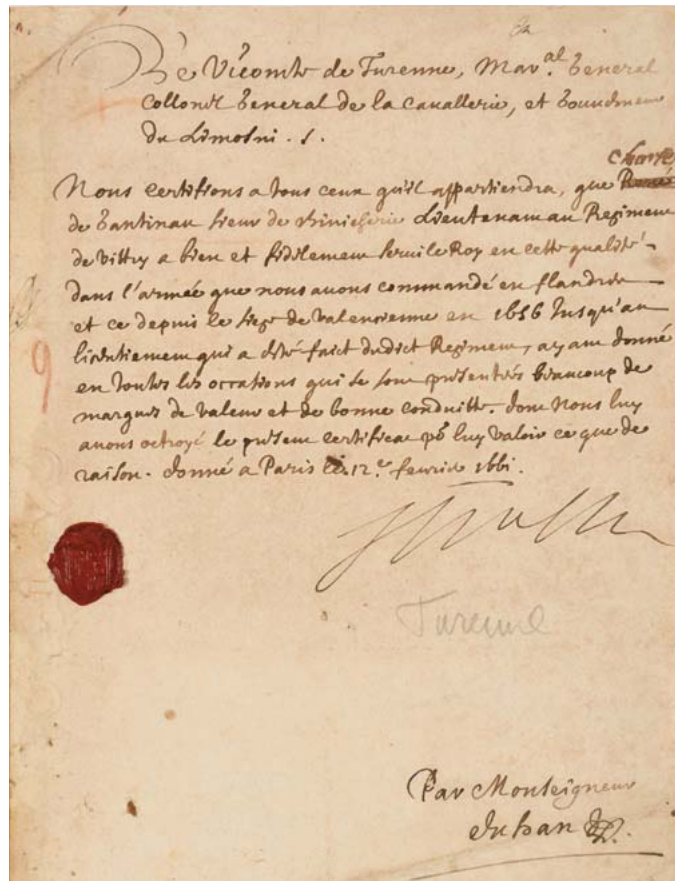 Le Vicomte de Turenne, Mar.al General
Collonel General de la Cavallerie, et Gouverneur
du Limosin .s.
Charles
Nous certifions a tous ceux qu'il appartiendra, que
de Gantinau sieur de Lieutenant au Regiment
de Vittry a bien et fidelement servi le Roy en cette qualité
dans l'armée que nous avons commandé en flandres
et ce depuis le siege de Valencienne en 1656 Jusqu'au
licentiement qui a esté faict dudict Regiment, ayant donné
en toutes les occations qui se sont presentées beaucoup de
marques de valeur et de bonne conduitte. dont Nous luy
avons octroyé le present certificat pr luy valoir ce que de
raison. donné a Paris le 12.e fevrier 1661.
9
Turenne
Par Monseigneur